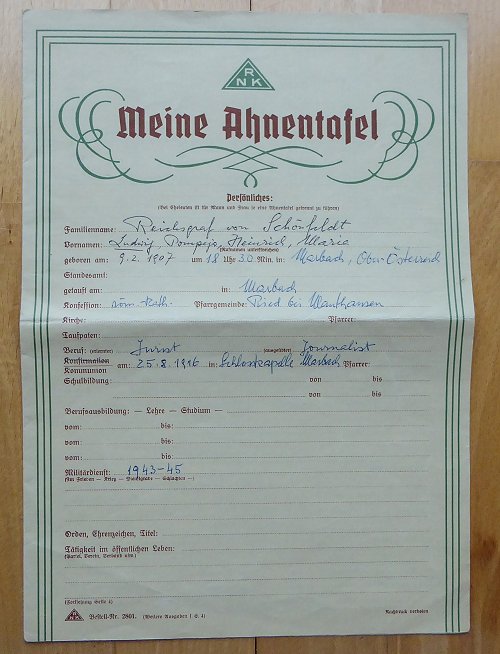 RNK
Meine Ahnentafel
Persönliches:
(Bei Eheleuten ist für Mann und Frau je eine Ahnentafel getrennt zu führen)
Familienname: Reichsgraf von Schönfeldt
Vornamen: Ludwig, Pompejo, Heinrich, Maria
(Rufnamen unterstreichen)
geboren am: 9.2.1907 um 18 Uhr 30 Min. in: Marbach, Ober-Österreich
Standesamt:
getauft am: in: Marbach
Konfession: röm.-kath. Pfarrgemeinde: Ried bei Mauthausen
Kirche: Pfarrer:
Taufpaten:
Beruf: (erlernten) Jurist (ausgeübten) Journalist
Konfirmation
Kommunion am: 25.8.1916 in: Schlosskapelle Marbach Pfarrer:
Schulbildung: von bis:
von bis:
Berufsausbildung: — Lehre — Studium —
vom: bis:
vom: bis:
vom: bis:
Militärdienst: 1943-45
(Im Frieden — Krieg — Dienstgrade — Schlachten —)
Orden, Ehrenzeichen, Titel:
Tätigkeit im öffentlichen Leben:
(Partei, Verein, Verband usw.)
(Fortsetzung Seite 4)
RNK Bestell-Nr. 2801. (Weitere Ausgaben S. 4)
Nachdruck verboten